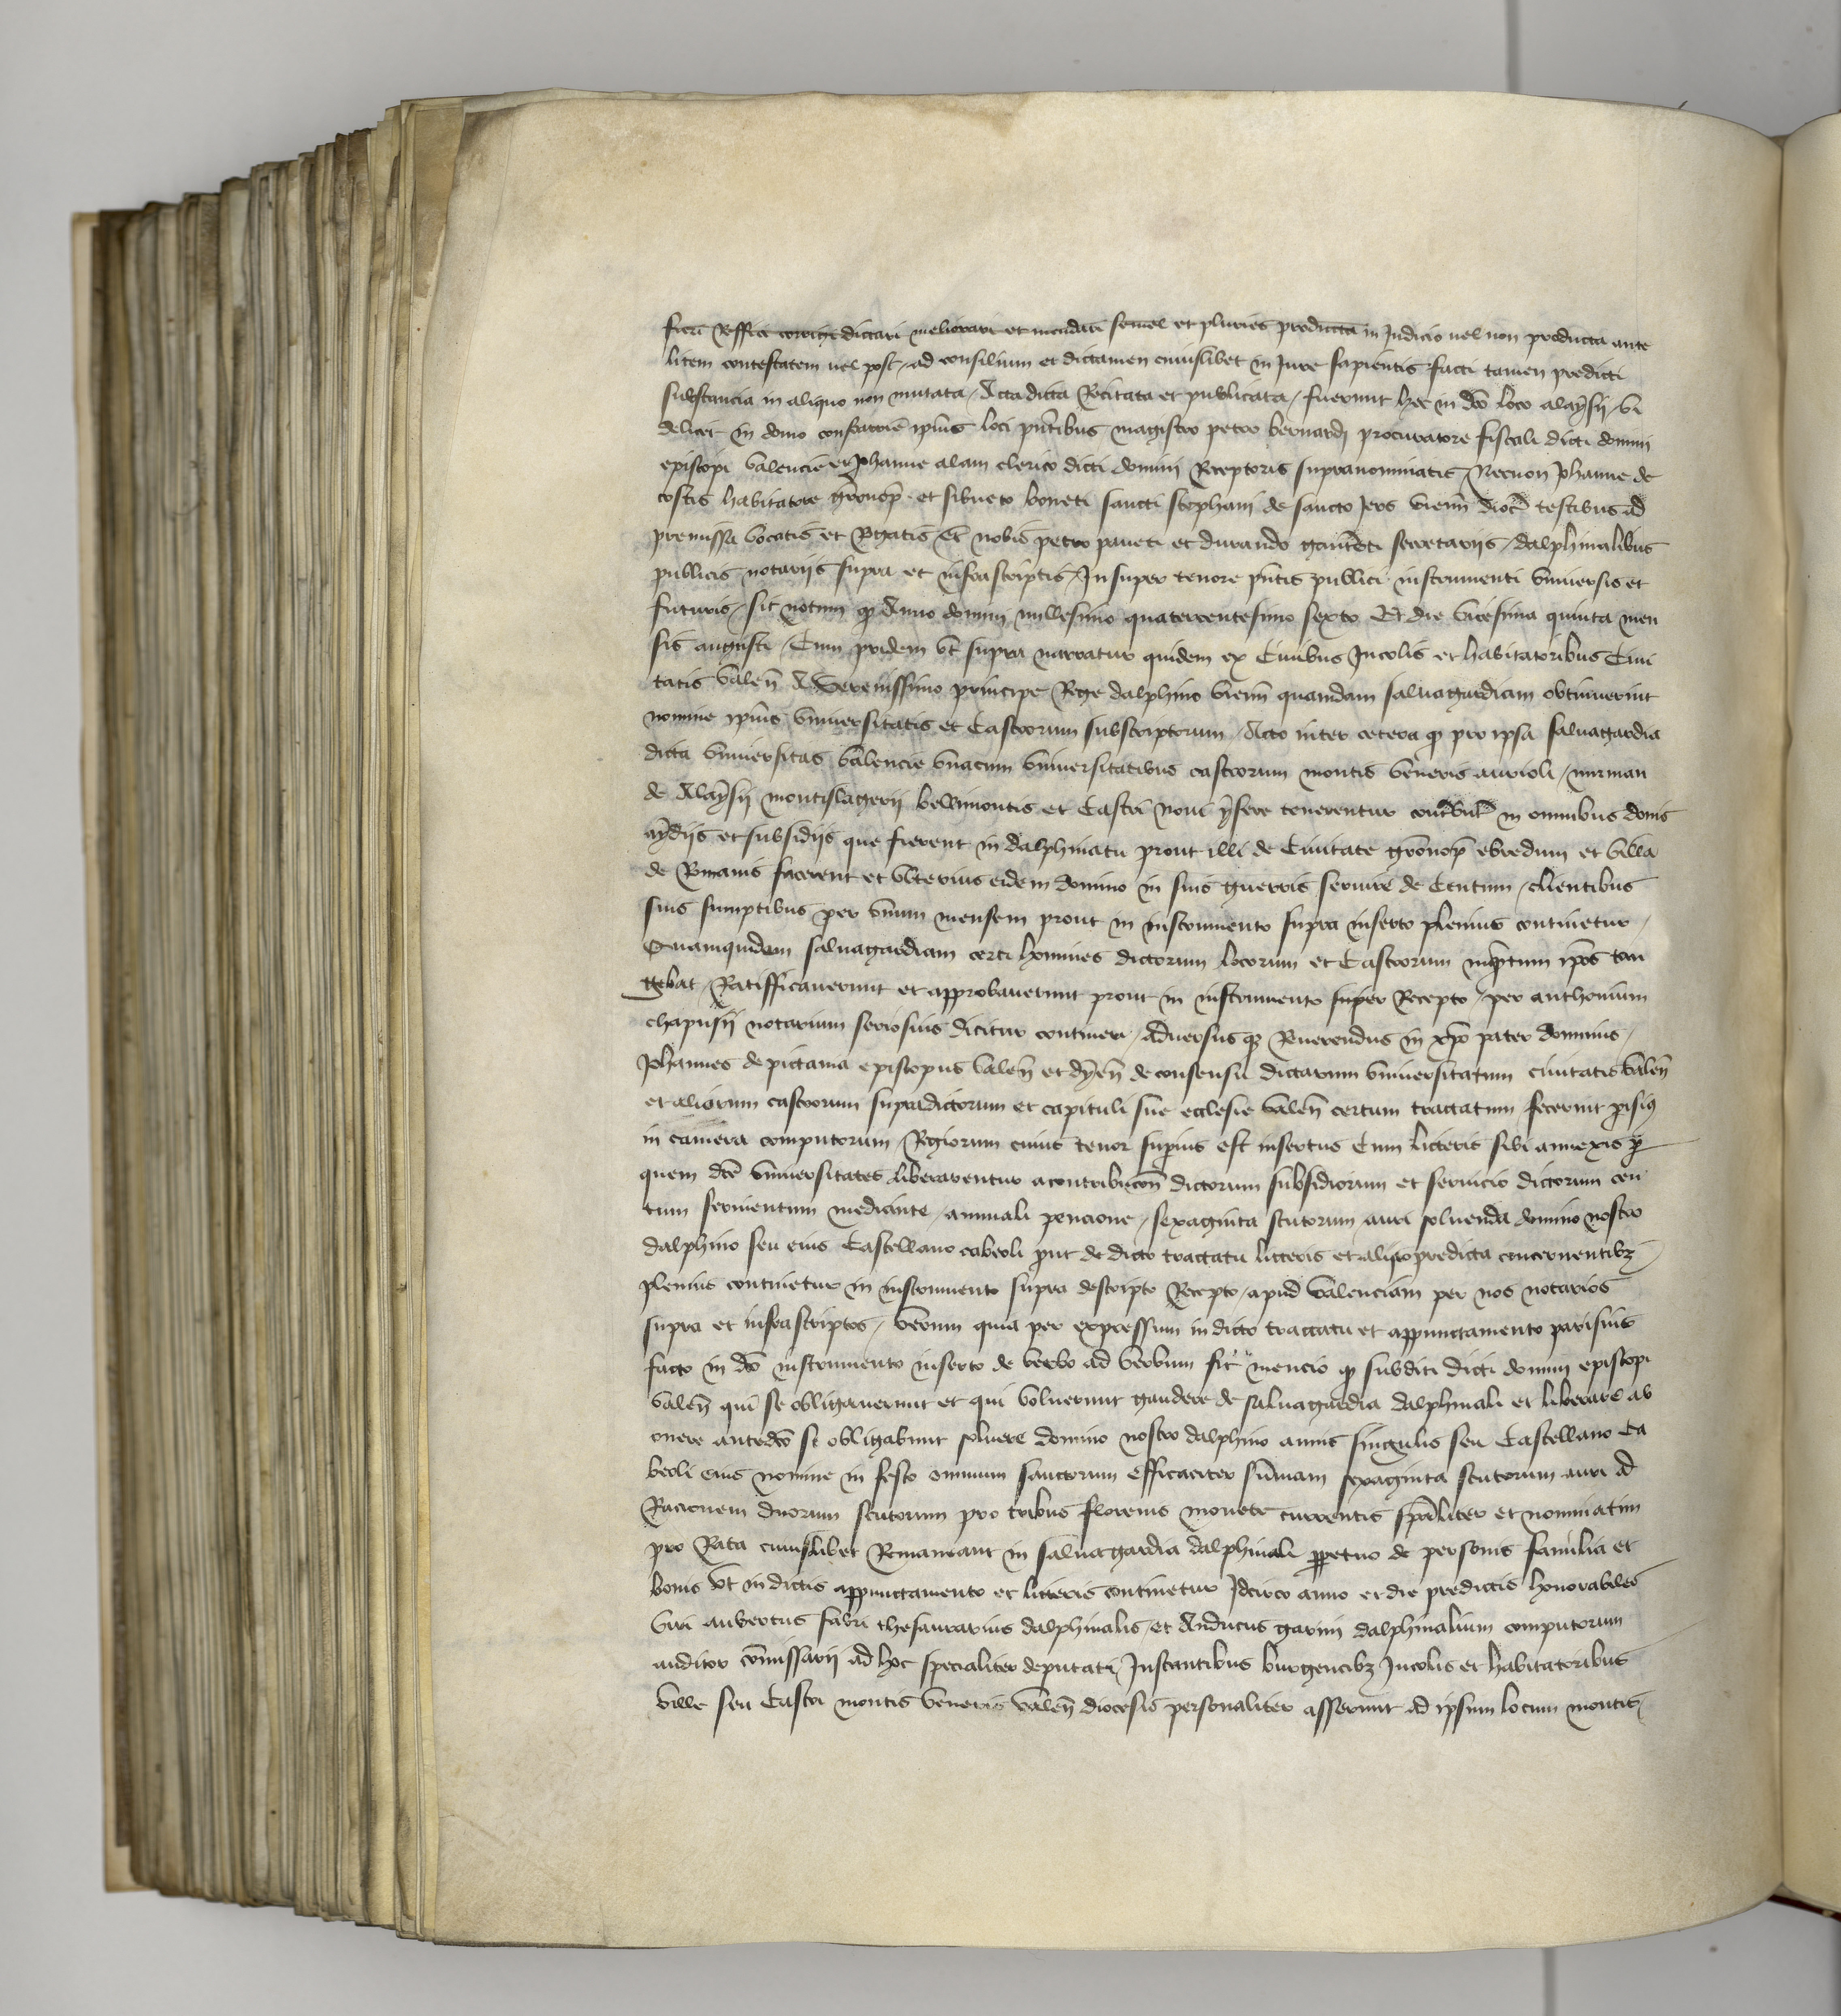 fieri Reffici corrihi dictari meliorari et mendari semel et pluries producta in Judicio uel non producta ante
litem contestatem uel post / ad consilium et dictamen cuiuslibet in Jure sapientis facti tamen predicti
substancia in aliquo non mutata / Acta dicta Recitata et publicata / fuerunt hec in dco loco alaysii / vi
delicet in domo confratrie ipius loci pntibus magistro petro bernardi procuratore fiscali dicti domini
episcopi valencie et Johanne alam clerico dicti domini Receptoris supranominatis / Necnon Johanne de
costis habitatore gronop et sibueto boneti sancti stephani de sancto Jers vienn dioc testibus ad
premissa vocatis et Rogatis Et nobis petro paneti et durando secretariis / dalphinalibus
publicis notariis supra et infrascriptis / Insuper tenore pntis publici instrumenti vniuersis et
futuris / sit notum q Anno domini millesimo quatercentesimo sexto Et die vicesima quinta men
sis augusti / Cum pridem vt supra narratur quidem ex Ciuibus Incolis et habitatoribus Ciui
tatis valen A Serenissimo principe Rege dalphino vienn quamdam saluagardiam obtinuerint
nomine ipius vniuersitatis et Castrorum subscriptorum / Acto inter cetera q pro ipsa saluagardia
dicta vniuersitas valencie vnacum vniuersitatibus castrorum montis veneris aurioli / mirman
de Alaysii montislagerii bellimontis et Castri noui ysere tenerentur contribu in omnibus donis
aydiis et subsidiis que fierent in dalphinatu prout illi de Ciuitate gronop ebredum et villa
de Romanis facerent et vlterius eidem domino in suis guerris seruire de Centum / clientibus
suis sumptibus per vnum mensem prout in instrumento supra inserto plenius continetur /
Quamquidem saluagardiam certi homines dictorum locorum et Castrorum inquantum ipos tan
gebat / Ratifficauerunt et approbauerunt prout in instrumento super Recepto / per anthonium
chapusii notarium seriosius dicitur contineri / aduersus q Reuerendus in xpo pater dominus /
Johannes de pictauia episcopus valen et dyen de consensu dictarum vniuersitatum ciuitatis valen
et aliorum castrorum supradictorum et capituli sue ecclesie valen certum tractatum fecerint pisius
in camera computorum / Regiorum cuius tenor supius est insertus Cum litteris sibi annexis p
quem dce vniuersitates liberarentur a contribucon dictorum subsidiorum et seruicio dictorum cen
tum seruientum mediante / annuali pencione / sexaginta scutorum / auri soluenda domino nostro
dalphino seu eius Castellano cabeoli put de dicto tractatu litteris et aliis predicta concernentibz /
plenius continetur in instrumento supra descripto Recepto / apud valenciam per nos notarios
supra et infrascriptos / verum quia per expressum in dicto tractatu et appunctamento parisius
facto in dco instrumento inserto de verbo ad verbum fit mencio q subditi dicti domini episcopi
valen qui se obligauerunt et qui voluerunt gaudere de saluagardia dalphinali et liberare ab
onere antedco se obligabunt soluere domino nostro dalphino annis singulis seu Castellano Ca
beoli eius nomine in festo omnium sanctorum efficaciter sumam sexaginta scutorum auri ad
Racionem duorum scutorum pro tribus florenis monete currentis spaliter et nominatim
pro Rata cuiuslibet Remaneant in saluagardia dalphinali ppetuo de personis familia et
bonis vt in dictis appunctamento et litteris continetur Idcirco anno et die predictis honorabiles
viri aubertus fabri thesaurarius dalphinalis / et Anducus garini dalphinalium computorum
auditor comissarii ad hoc specialiter deputati / Instantibus burgencibz Incolis et habitatoribus
ville seu Castri montis veneris valen diocesis personaliter asserunt ad ipsum locum montis /